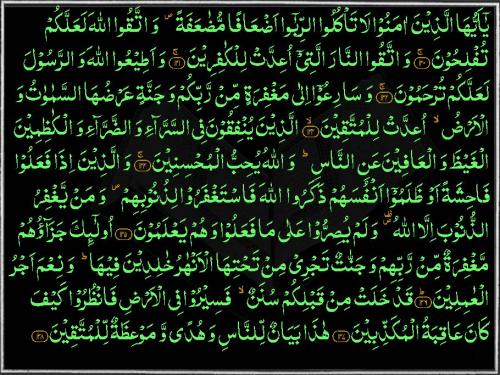 يٰٓاَيُّهَا الَّذِيْنَ اٰمَنُوْا لَا تَاْكُلُوا الرِّبٰٓوا اَضْعَافًا مُّضٰعَفَةً ۖ وَاتَّقُوا اللّٰهَ لَعَلَّكُمْ
تُفْلِحُوْنَ ۚ ﴿۱۳۰﴾ وَاتَّقُوا النَّارَ الَّتِيْٓ اُعِدَّتْ لِلْكٰفِرِيْنَ ۚ ﴿۱۳۱﴾ وَاَطِيْعُوا اللّٰهَ وَالرَّسُوْلَ
لَعَلَّكُمْ تُرْحَمُوْنَ ۚ ﴿۱۳۲﴾ وَسَارِعُوْٓا اِلٰى مَغْفِرَةٍ مِّنْ رَّبِّكُمْ وَجَنَّةٍ عَرْضُهَا السَّمٰوٰتُ وَ
الْاَرْضُ ۙ اُعِدَّتْ لِلْمُتَّقِيْنَ ۙ ﴿۱۳۳﴾ الَّذِيْنَ يُنْفِقُوْنَ فِى السَّرَّآءِ وَالضَّرَّآءِ وَالْكٰظِمِيْنَ
الْغَيْظَ وَالْعَافِيْنَ عَنِ النَّاسِ ؕ وَاللّٰهُ يُحِبُّ الْمُحْسِنِيْنَ ۚ ﴿۱۳۴﴾ وَالَّذِيْنَ اِذَا فَعَلُوْا
فَاحِشَةً اَوْ ظَلَمُوْٓا اَنْفُسَهُمْ ذَكَرُوا اللّٰهَ فَاسْتَغْفَرُوْا لِذُنُوْبِهِمْ ۖ وَمَنْ يَّغْفِرُ
الذُّنُوْبَ اِلَّا اللّٰهُ ۖ وَلَمْ يُصِرُّوْا عَلٰى مَا فَعَلُوْا وَهُمْ يَعْلَمُوْنَ ﴿۱۳۵﴾ اُولٰٓئِكَ جَزَآؤُهُمْ
مَّغْفِرَةٌ مِّنْ رَّبِّهِمْ وَجَنّٰتٌ تَجْرِيْ مِنْ تَحْتِهَا الْاَنْهٰرُ خٰلِدِيْنَ فِيْهَا ؕ وَنِعْمَ اَجْرُ
الْعٰمِلِيْنَ ؕ ﴿۱۳۶﴾ قَدْ خَلَتْ مِنْ قَبْلِكُمْ سُنَنٌ ۙ فَسِيْرُوْا فِى الْاَرْضِ فَانْظُرُوْا كَيْفَ
كَانَ عَاقِبَةُ الْمُكَذِّبِيْنَ ﴿۱۳۷﴾ هٰذَا بَيَانٌ لِّلنَّاسِ وَهُدًى وَّمَوْعِظَةٌ لِّلْمُتَّقِيْنَ ﴿۱۳۸﴾